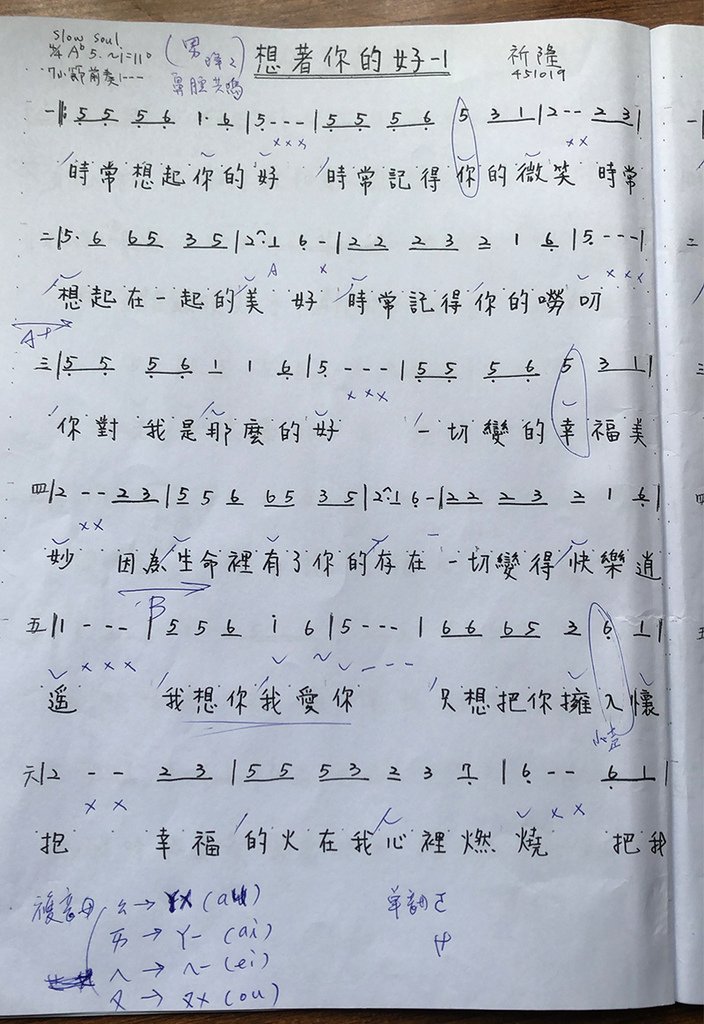 Slow Soul
(男降2
想著你的好-1
祈隆
451019
鼻腔共鳴
一 ‖: 5 5 5 6 1· 6 | 5 - - - | 5 5 5 6 5 3 1 | 2 - - 2 3 |
× × × × ×
時常想起你的好 時常記得你的微笑 時常
二 | 5· 6 6 5 3 5 | 2· 1 6 - | 2 2 2 3 2 1 6 | 5 - - - |
A × × × ×
想起在一起的美好 時常記得你的嘮叨
A+
三 | 5 5 5 6 1 1 6 | 5 - - - | 5 5 5 6 5 3 1 |
× × ×
你對我是那麼的好 一切變的幸福美
四 | 2 - - 2 3 | 5 5 6 6 5 3 5 | 2· 1 6 - | 2 2 2 3 2 1 6 |
× ×
妙 因為生命裡有了你的存在 一切變得快樂逍
B
五 | 1 - - - | 5 5 6 i 6 | 5 - - - | 6 6 6 5 3 6 1 |
× × ×
遥 我想你我愛你 只想把你擁入懷
六 | 2 - - 2 3 | 5 5 5 3 2 3 7 | 6 - - 6 1 |
× × × ×
抱 幸福的火在我心裡燃燒 把我
複音母 ㄠ → ㄚㄨ (au)
單韻
ㄞ → ㄚㄧ (ai)
ㄟ → ㄟㄧ (ei)
ㄡ → ㄡㄨ (ou)